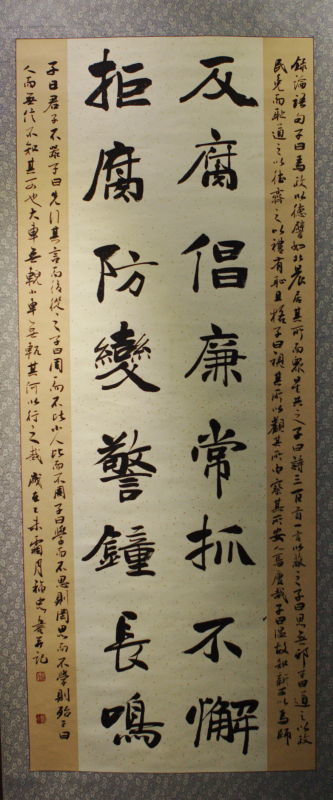 錄論語句子曰為政以德譬如北辰居其所而眾星共之子曰詩三百首一言以蔽之子曰思無邪子曰道之以政
民免而恥道之以德齊之以禮有恥且格子曰視其所以觀其所由察其所安人焉廋哉子曰溫故知新可以為師
反腐倡廉常抓不懈
拒腐防變警鐘長鳴
子曰君子不器子曰先行其言而後從之子曰周而不比小人比而不周子曰學而不思則罔思而不學則殆子曰
人而無信不知其可也大車無輗小車無軏其何以行之哉歲在乙未霜月福忠書并記